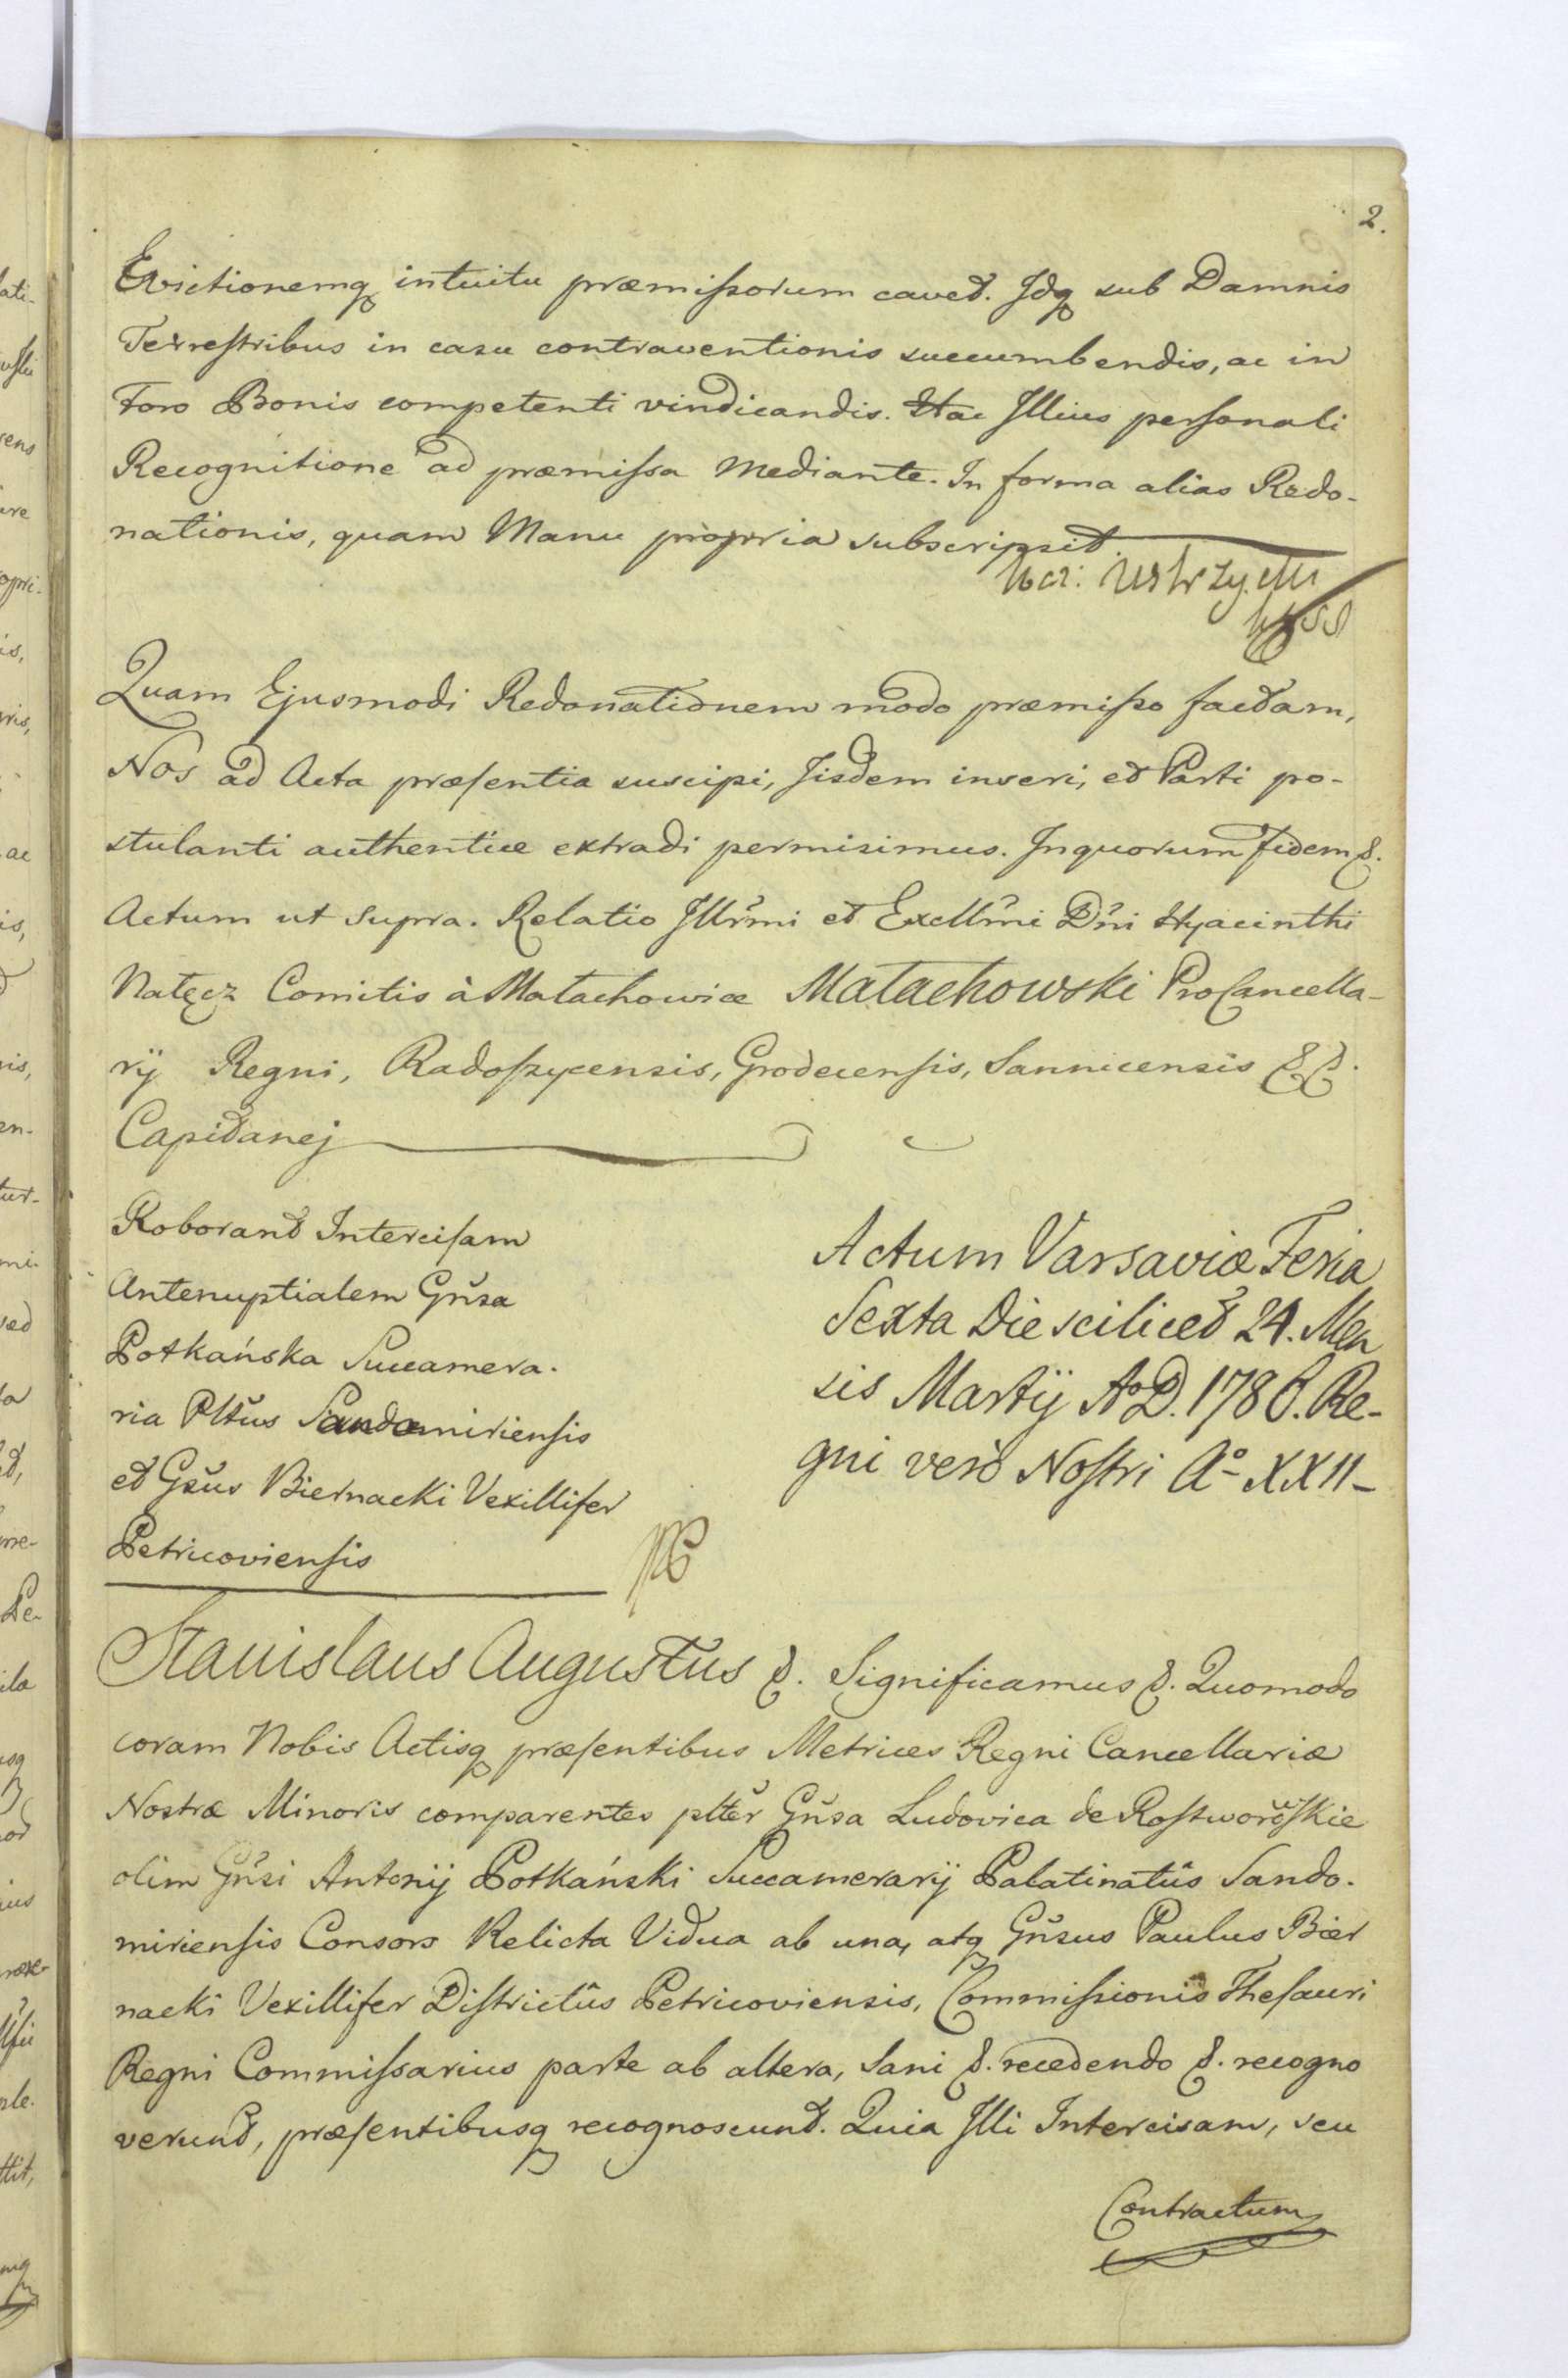 2.
Evictionemq intuitu præmissorum cavet. Idq sub Damnis
Terrestribus in casu contraventionis succumbendis, ac in
Foro Bonis competenti vindicandis. Hac Illius personali
Recognitione ad præmissa mediante. In forma alias Redo-
nationis, quam Manu propria subscripsit.
Quam Ejusmodi Redonationem modo præmisso factam,
Nos ad Acta præsentia suscipi, Iisdem inseri, et Parti po-
stulanti authentice extradi permisimus. Inquorum fidem &.
Actum ut supra. Relatio Illr̃mi et Excellm̃i Dñi Hyacinthi
Natęcz Comitis à Małachowice Małachowski ProCancella-
rÿ Regni, Radoszycensis, Grodecensis, Sannicensis &&.
Capitanej
Roborant Intercisam
Antenuptialem Gñsa
Potkańska Succamera.
ria Pltũs Sandomiriensis
et Gsũs Biernacki Vexillifer
Petricoviensis
Actum Varsaviæ Feria
Sexta Die scilicet 24. Men
sis Martÿ AoD. 1786. Re-
gni verò Nostri Ao XXII-
Stanislaus Augustus &. Significamus &. Quomodo
coram Nobis Actisq præsentibus Metrices Regni Cancellariæ
Nostræ Minoris comparentes pltẽr Gñsa Ludovica de Rostworowskie
olim Gñsi Antonÿ Potkański Succamerarÿ Palatinatûs Sando.
miriensis Consors Relicta Vidua ab una, atq Gñsus Paulus Bier
nacki Vexillifer Districtûs Petricoviensis, Commissionis Thesauri
Regni Commissarius parte ab altera, Sani &. recedendo &. recogno
verunt, præsentibusq recognoscunt. Quia Illi Intercisam, seu
Contractum